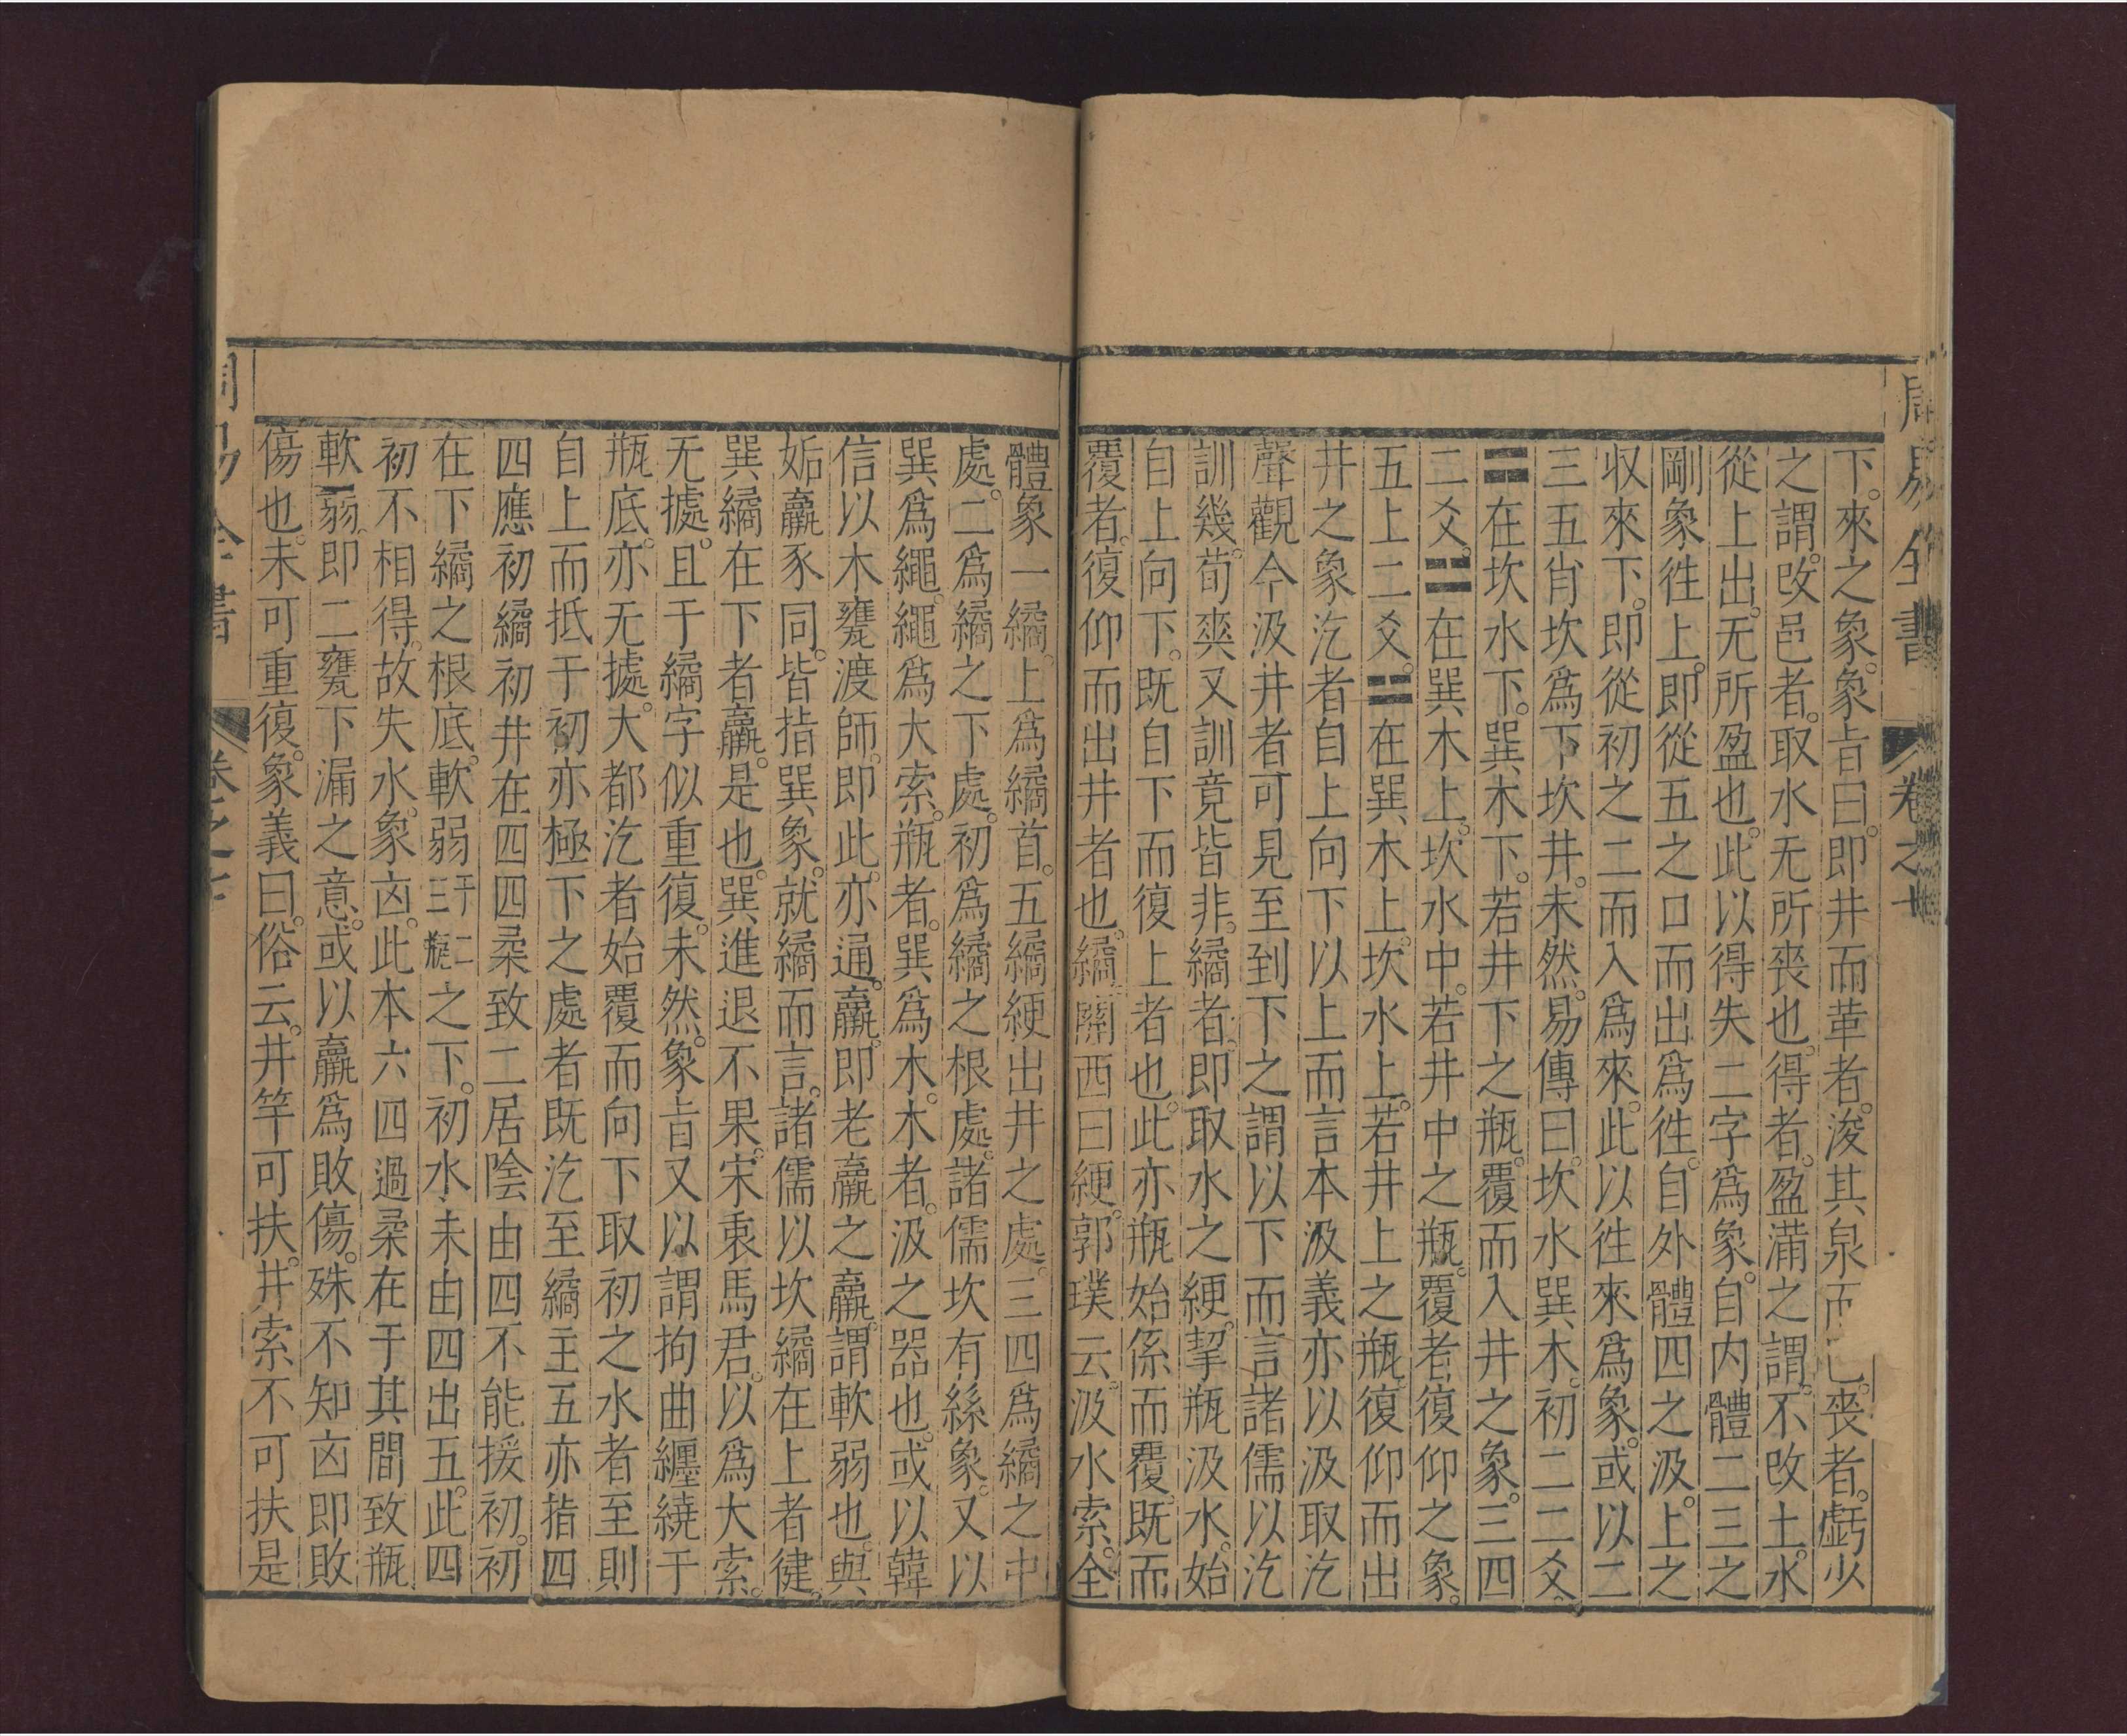 周易全書 卷之十
下。來之象。象旨曰。即井而革者。浚其泉而已。喪者。虧少
之謂。改邑者。取水无所喪也。得者。盈滿之謂。不改土。水
從上出。无所盈也。此以得失二字爲象。自内體二三之
剛象徃上。即從五之口而出爲徃。自外體四之汲。上之
収來下。即從初之二而入爲來。此以徃來爲象。或以二
三五肖坎爲下坎井。未然。易傳曰。坎水巽木。初二二爻
☱在坎水下。巽木下。若井下之瓶。覆而入井之象。三四
二爻。☲在巽木上。坎水中。若井中之瓶。覆者復仰之象。
五上二爻。☵在巽木上。坎水上。若井上之瓶。復仰而出
井之象汔者自上向下以上而言本汲義亦以汲取汔
聲觀今汲井者可見至到下之謂以下而言諸儒以汔
訓幾。荀爽又訓竟皆非。繘者。即取水之綆。挈瓶汲水。始
自上向下。既自下而復上者也。此亦瓶始係而覆。既而
覆者。復仰而出井者也。繘。關西曰綆。郭璞云。汲水索。全
體象一繘。上爲繘首。五繘綆出井之處。三四爲繘之中
處。二爲繘之下處。初爲繘之根處。諸儒坎有絲象。又以
巽爲繩。繩爲大索。瓶者。巽爲木。木者。汲之器也。或以韓
信以木甕渡師。即此。亦通。羸。即老羸之羸。謂軟弱也。與
姤羸豕同。皆指巽象。就繘而言。諸儒以坎繘在上者徤。
巽繘在下者羸。是也。巽進退不果。宋衷馬君。以爲大索。
无據。且于繘字似重復。未然。象旨又以謂拘曲纏繞于
瓶底。亦无據。大都汔者始覆而向下取初之水者至則
自上而抵于初亦極下之處者既汔至繘主五亦指四
四應初繘初井在四四柔致二居陰由四不能援初。初
在下繘之根底。軟弱于二三瓶之下。初水未由四出五。此四
初不相得。故失水。象凶。此本六四過柔在于其間致瓶
軟弱。即二甕下漏之意。或以羸爲敗傷。殊不知凶即敗
傷也。未可重復。象義曰。俗云。井竿可扶。井索不可扶是
周易全書 卷之十